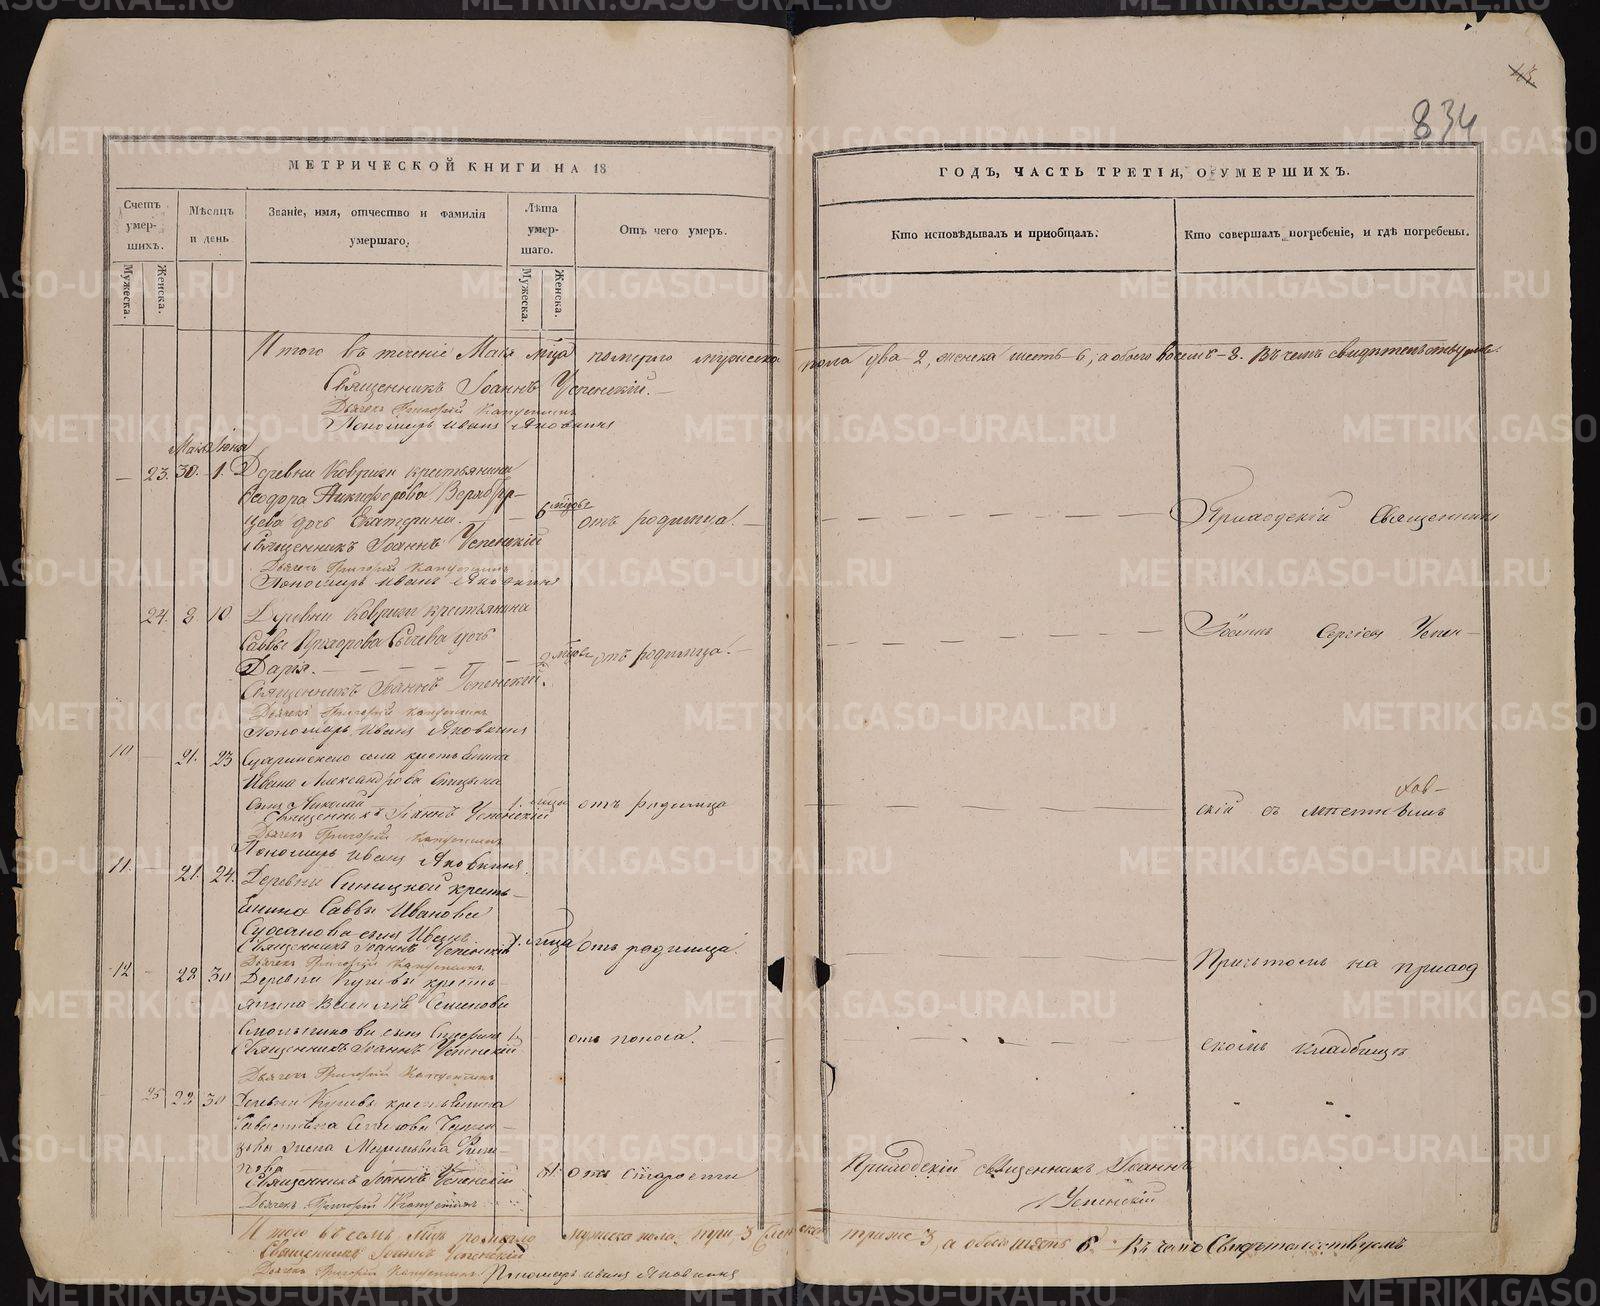 834
МЕТРИЧЕСКОЙ КНИГИ НА 18
ГОДЪ, ЧАСТЬ ТРЕТІЯ, О УМЕРШИХЪ.
Счетъ умер-шихъ.
Мужеска.
Женска.
Мѣсяцъ и день
Званіе, имя, отчество и фамилія умершаго.
Лѣта умер-шаго.
Мужеска.
Женска.
Отъ чего умеръ.
Кто исповѣдывалъ и пріобщалъ.
Кто совершалъ погребеніе, и гдѣ погребены.
Итого въ теченіе Маія мца померло мужеска пола два - 2, женска шесть 6, а обоего восемь - 8. Въ чемъ свидѣтельствуемъ.
Священникъ Іоаннъ Успенскій.
Дьячекъ Григорій Капустинъ
Пономарь Иванъ Яковкинъ
Маія Іюня
23. 30. 1. Деревни Ковриги крестьянина
Ѳеодора Никифорова
дочь Екатерина. 6 мцовъ отъ родимца.
Приходскій Священникъ
Священникъ Іоаннъ Успенскій
Дьячекъ Григорій Капустинъ
Пономарь Иванъ Яковкинъ
24. 2 10 Деревни Ковриги крестьянина
Саввы дочь
Дарія. 2 мцовъ отъ родимца.
Іоаннъ Сергіевъ Успен-
Священникъ Іоаннъ Успенскій.
Дьячекъ Григорій Капустинъ
Пономарь Иванъ Яковкинъ
10 21. 23 села крестьянина
Ивана Александрова
сынъ Николай 1. мца отъ родимца
скій съ мѣстнымъ
Священникъ Іоаннъ Успенскій
Дьячекъ Григорій Капустинъ
Пономарь Иванъ Яковкинъ
11. 21. 24. Деревни Синицкой кресть-
янина Саввы Иванова
сынъ 1. мца отъ родимца.
Священникъ Іоаннъ Успенскій
Дьячекъ Григорій Капустинъ
Причтомъ на приход
12 22 30 Деревни кресть-
янина Василія Семенова
сынъ отъ поноса.
скомъ кладбищѣ
Священникъ Іоаннъ Успенскій
Дьячекъ Григорій Капустинъ
25 22 30 Деревни крестьянина
жена
отъ старости
Приходскій священникъ Іоаннъ
Успенскій
Священникъ Іоаннъ Успенскій
Дьячекъ Григорій Капустинъ
Итого въ семъ мцѣ померло мужеска пола три 3 женска три 3, а обоего шесть 6 Въ чемъ Свидѣтельствуемъ
Священникъ Іоаннъ Успенскій
Дьячекъ Григорій Капустинъ Пономарь Иванъ Яковкинъ
METRIKI.GASO-URAL.RU